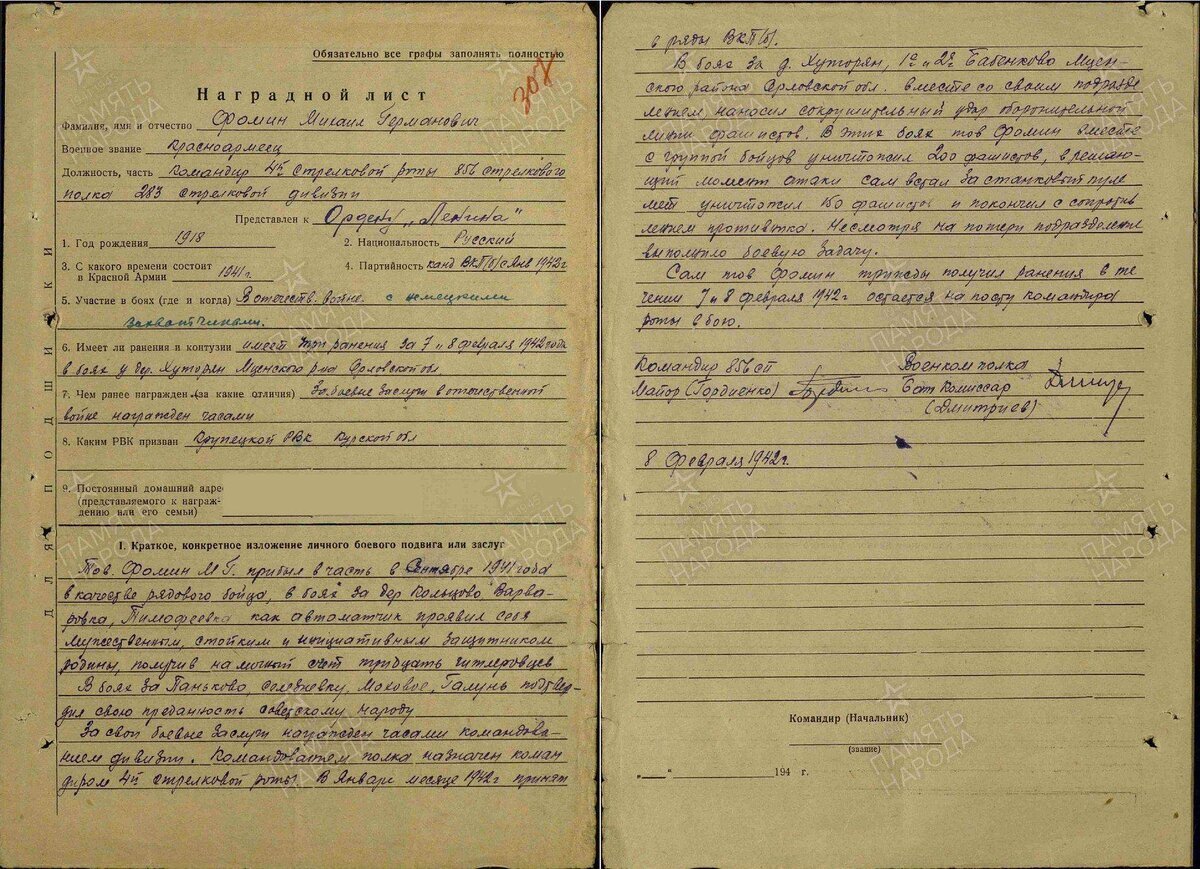 Обязательно все графы заполнять полностью
307
Наградной лист
Фамилия, имя и отчество Фомин Михаил Германович
Военное звание Красноармеец
Должность, часть Командир 4й стрелковой роты 856 стрелкового
полка 283 стрелковой дивизии
Представлен к Ордену „Ленина"
1. Год рождения 1918 2. Национальность Русский
3. С какого времени состоит в Красной Армии 1941 г. 4. Партийность канд ВКП(б) с Янв 1942г
5. Участие в боях (где и когда) В отечеств. войне. с немецкими
захватчиками.
6. Имеет ли ранения и контузии имеет три ранения за 7 и 8 февраля 1942 года
в боях у дер. Хуторян Мценского р-на Орловской обл
7. Чем ранее награжден (за какие отличия) За боевые заслуги в отечественной
войне награжден часами
8. Каким РВК призван Крупецкой РВК Курской обл
9. Постоянный домашний адре
(представляемого к награж-
дению или его семьи)
ДЛЯ ПОДШИВКИ
I. Краткое, конкретное изложение личного боевого подвига или заслуг
Тов. Фомин М Г. прибыл в часть в Сентябре 1941 года
в качестве рядового бойца, в боях за дер Кольцово Варва-
ровка, Тимофеевка как автоматчик проявил себя
мужественным, стойким и инициативным защитником
родины, получив на личный счет тридцать гитлеровцев
В боях за Паньково, Селезневку, Моховое, Галунь подтвер-
дил свою преданность советскому народу
За свои боевые заслуги награжден часами командова-
нием дивизии. Командованием полка назначен коман
диром 4й стрелковой роты. В Январе месяце 1942г принят
в ряды ВКП(б).
В боях за д. Хуторян, 1е и 2е Бабенково Мцен-
ского района Орловской обл. вместе со своим подразде
лением наносил сокрушительный удар оборонительной
линии фашистов. В этих боях тов Фомин вместе
с группой бойцов уничтожил 200 фашистов, в решаю-
щий момент атаки сам встал за станковый пуле
мет уничтожил 150 фашистов и покончил с сопротив
лением противника. Несмотря на потери подразделение
выполнило боевую задачу.
Сам тов Фомин трижды получил ранения в те
чении 7 и 8 февраля 1942г остается на посту командира
роты в бою.
Командир 856 сп Военком полка
Майор (Гордиенко) Бат Комиссар
(Дмитриев)
8 Февраля 1942г.
Командир (Начальник)
(звание)
„ " 194 г.
ПАМЯТЬ НАРОДА